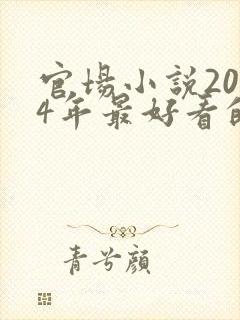 官場小說20
4年最好看的
青兮顏